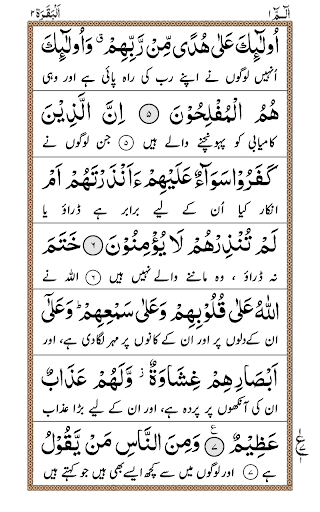 الٓمّٓ ١ اَلْبَقَرَة ٢
اُولٰٓئِكَ عَلٰى هُدًى مِّنْ رَّبِّهِمْ ۗ وَاُولٰٓئِكَ
انہیں لوگوں نے اپنے رب کی راہ پائی ہے اور وہی
هُمُ الْمُفْلِحُوْنَ ۝٥ اِنَّ الَّذِيْنَ
کامیابی کو پہونچنے والے ہیں ۝۵ جن لوگوں نے
كَفَرُوْا سَوَآءٌ عَلَيْهِمْ ءَاَنْذَرْتَهُمْ اَمْ
انکار کیا اُن کے لیے برابر ہے ڈراؤ یا
لَمْ تُنْذِرْهُمْ لَا يُؤْمِنُوْنَ ۝٦ خَتَمَ
نہ ڈراؤ ، وہ ماننے والے نہیں ہیں ۝۶ اللہ نے
اللّٰهُ عَلٰى قُلُوْبِهِمْ وَعَلٰى سَمْعِهِمْ ؕ وَعَلٰٓى
ان کے دلوں پر اور ان کے کانوں پر مہر لگادی ہے، اور
اَبْصَارِهِمْ غِشَاوَةٌ ز وَّلَهُمْ عَذَابٌ
ان کی آنکھوں پر پردہ ہے، اور ان کے لیے بڑا عذاب
عَظِيْمٌ ۝٧ ع وَمِنَ النَّاسِ مَنْ يَّقُوْلُ
ہے ۝۷ اور لوگوں میں سے کچھ ایسے بھی ہیں جو کہتے ہیں